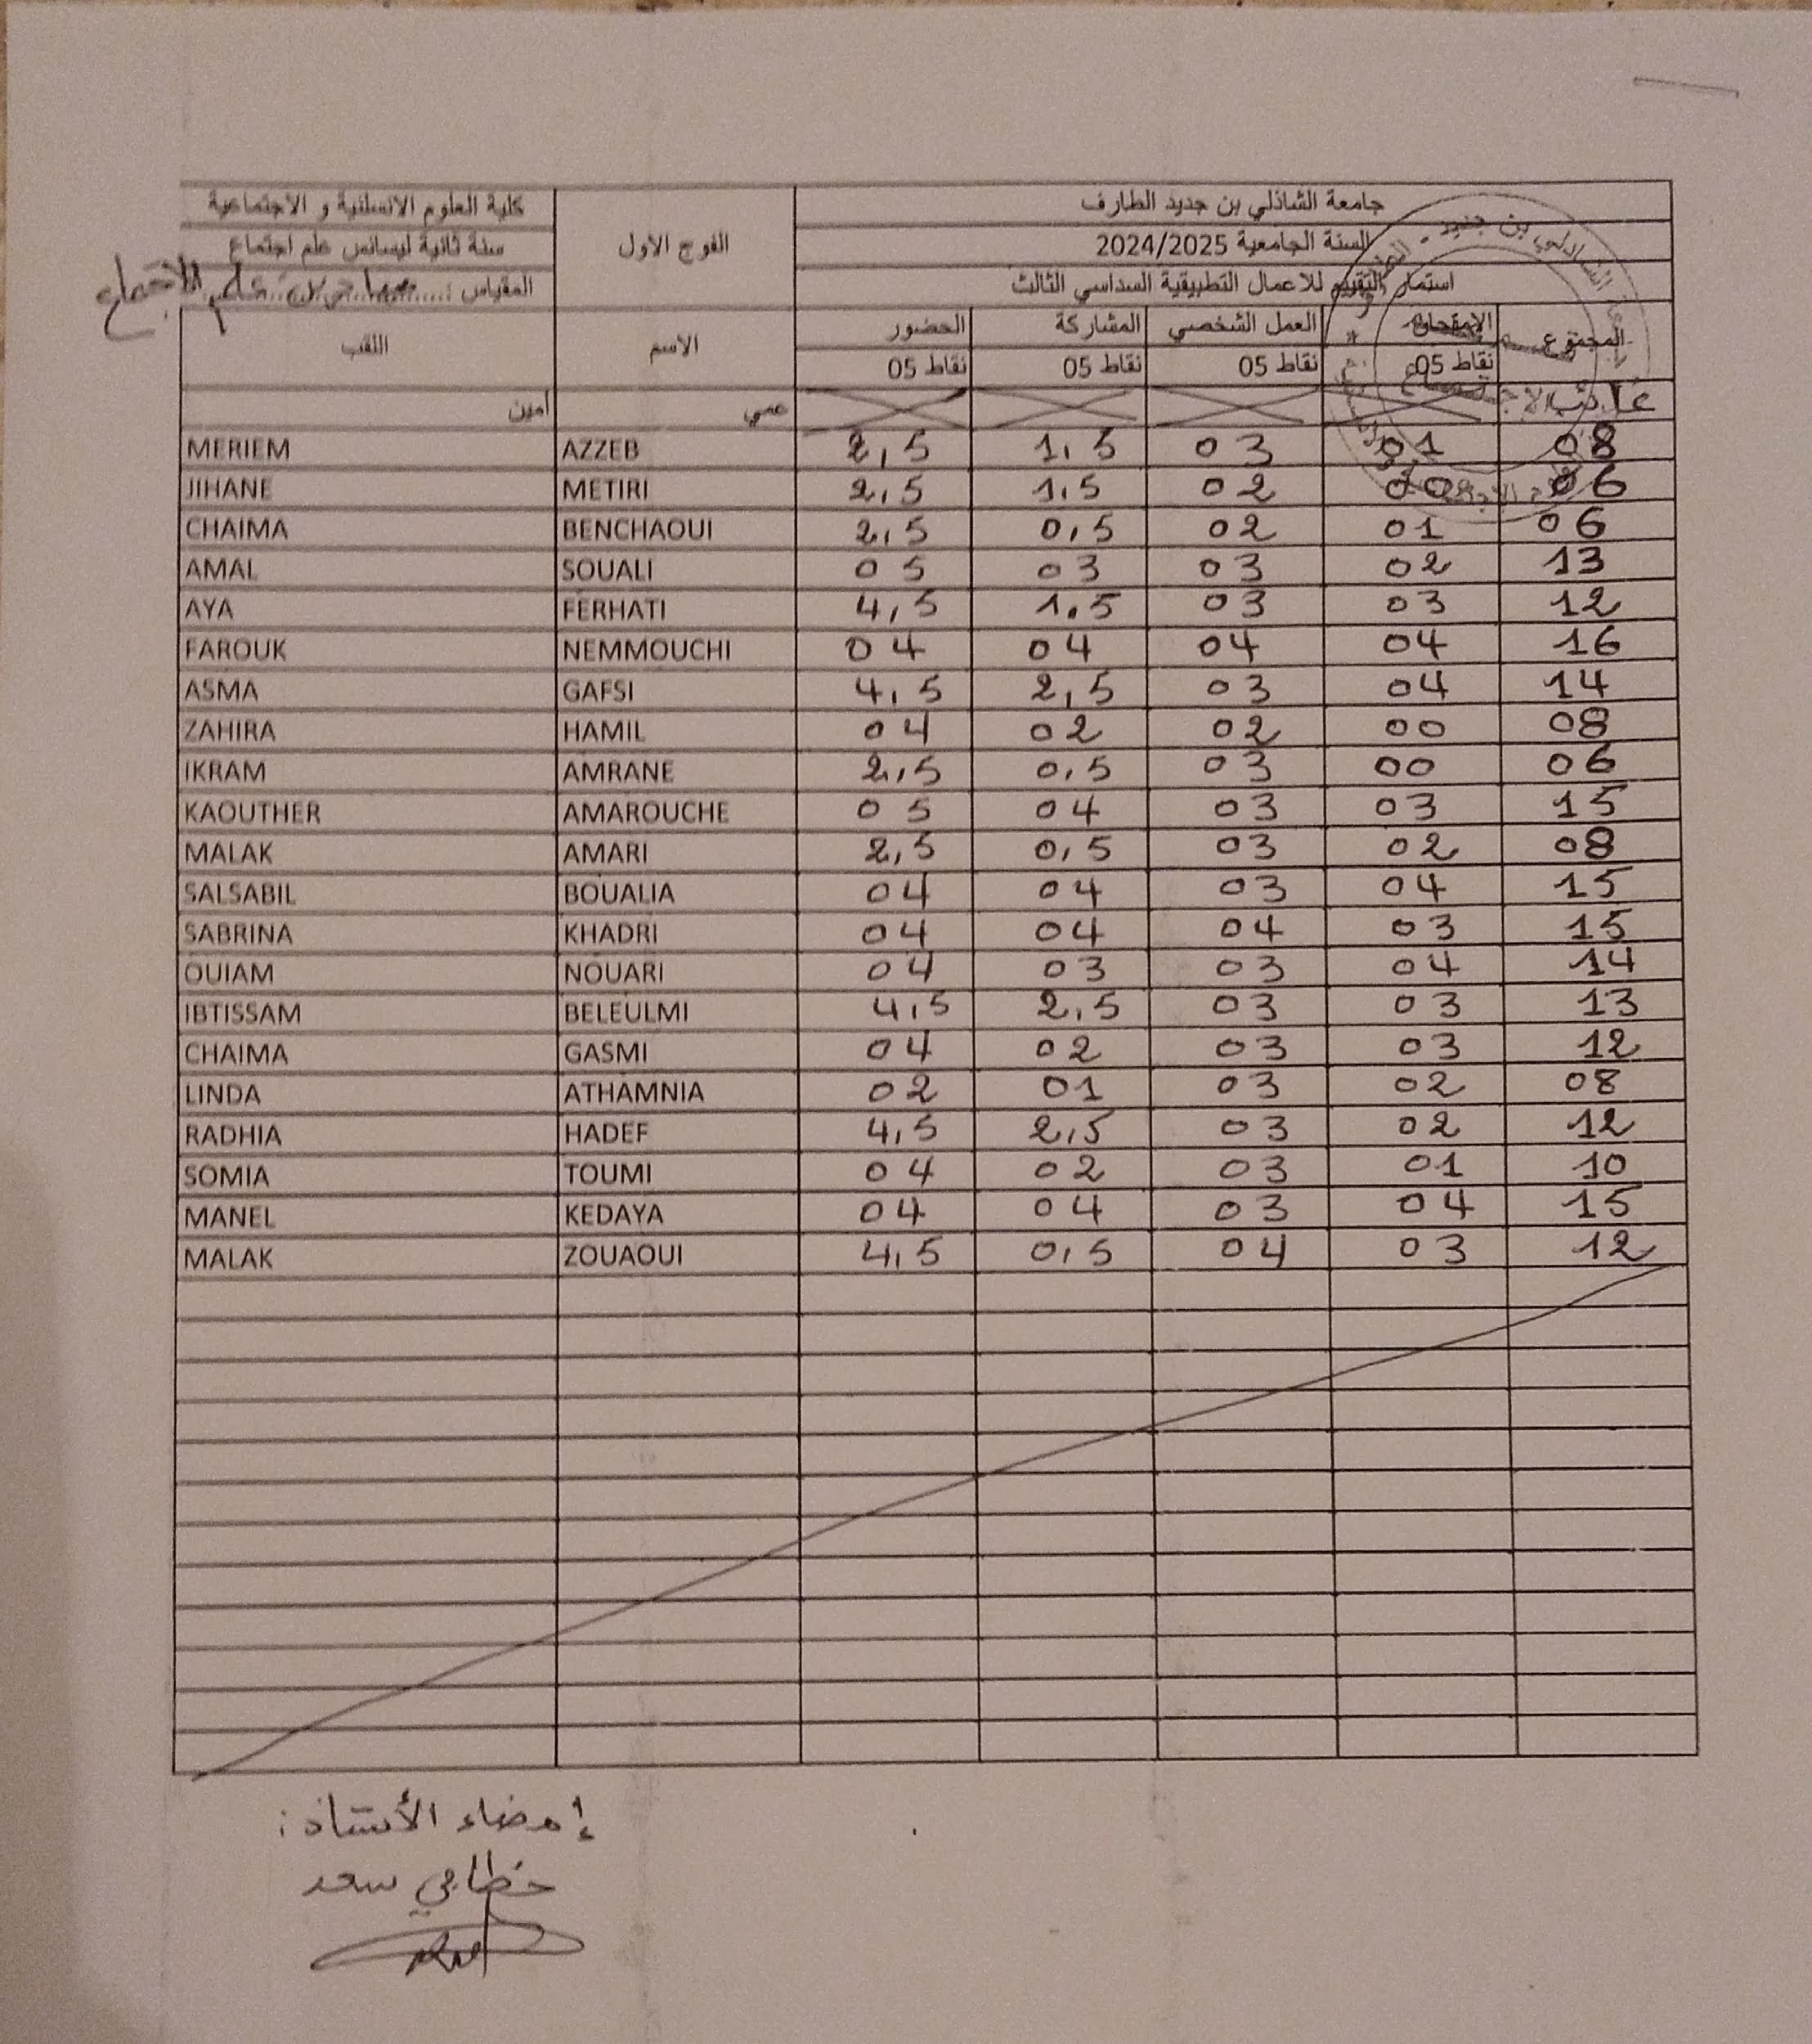 كلية العلوم الانسانية و الاجتماعية
سنة ثانية ليسانس علم اجتماع
المقياس :
الفوج الاول
جامعة الشاذلي بن جديد الطارف
السنة الجامعية 2024/2025
استمارة التقييم للاعمال التطبيقية السداسي الثالث
اللقب الاسم الحضور المشاركة العمل الشخصي الامتحان المجموع
نقاط 05 نقاط 05 نقاط 05 نقاط 05
امين عمي غائب
MERIEM AZZEB 2,5 1,5 03 01 08
JIHANE METIRI 2,5 1,5 02 00 06
CHAIMA BENCHAOUI 2,5 0,5 02 01 06
AMAL SOUALI 05 03 03 02 13
AYA FERHATI 4,5 1,5 03 03 12
FAROUK NEMMOUCHI 04 04 04 04 16
ASMA GAFSI 4,5 2,5 03 04 14
ZAHIRA HAMIL 04 02 02 00 08
IKRAM AMRANE 2,5 0,5 03 00 06
KAOUTHER AMAROUCHE 05 04 03 03 15
MALAK AMARI 2,5 0,5 03 02 08
SALSABIL BOUALIA 04 04 03 04 15
SABRINA KHADRI 04 04 04 03 15
OUIAM NOUARI 04 03 03 04 14
IBTISSAM BELEULMI 4,5 2,5 03 03 13
CHAIMA GASMI 04 02 03 03 12
LINDA ATHAMNIA 02 01 03 02 08
RADHIA HADEF 4,5 2,5 03 02 12
SOMIA TOUMI 04 02 03 01 10
MANEL KEDAYA 04 04 03 04 15
MALAK ZOUAOUI 4,5 0,5 04 03 12
إمضاء الأستاذ:
سعد